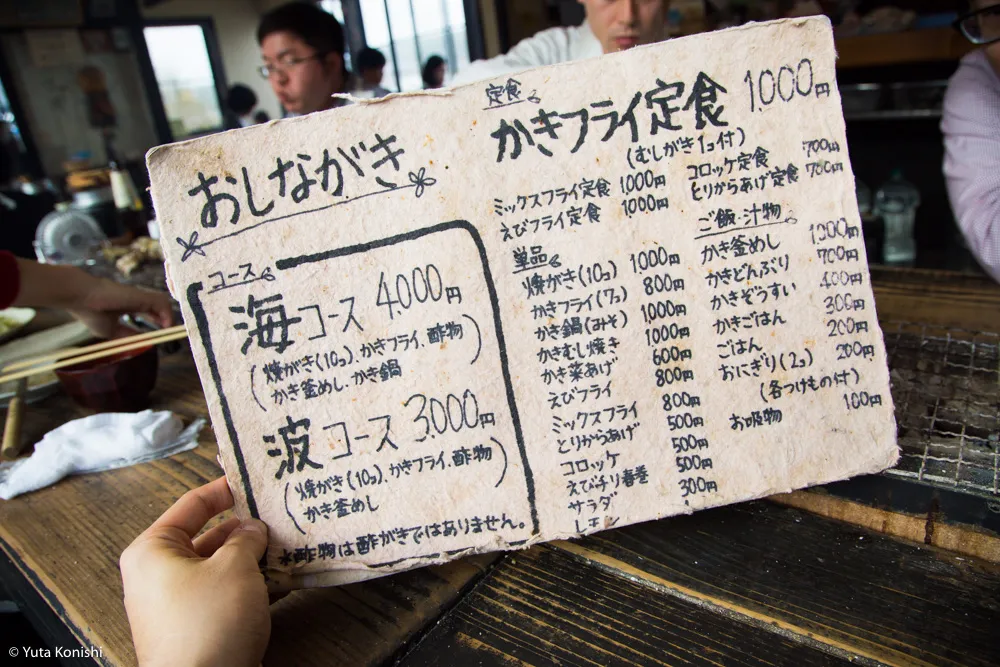 おしながき
コース
海コース 4,000円
(焼がき(10コ)、かきフライ、酢物
かき釜めし、かき鍋)
波コース 3,000円
(焼がき(10コ)、かきフライ、酢物
かき釜めし)
*酢物は酢がきではありません。
定食
かきフライ定食 1,000円
(むしがき1コ付)
ミックスフライ定食 1,000円
えびフライ定食 1,000円
コロッケ定食 700円
とりからあげ定食 700円
単品
焼がき(10コ) 1000円
かきフライ(7コ) 800円
かき鍋(みそ) 1000円
かきむし焼き 1000円
かき あげ 600円
えびフライ 800円
ミックスフライ 800円
とりからあげ 500円
コロッケ 500円
えびチリ春巻 500円
サラダ 300円
レモン
ご飯・汁物
かき釜めし 1000円
かきどんぶり 700円
かきぞうすい 400円
かきごはん 300円
ごはん 200円
おにぎり(2コ) 200円
(各つけもの付)
お吸物 100円
© Yuta Konishi